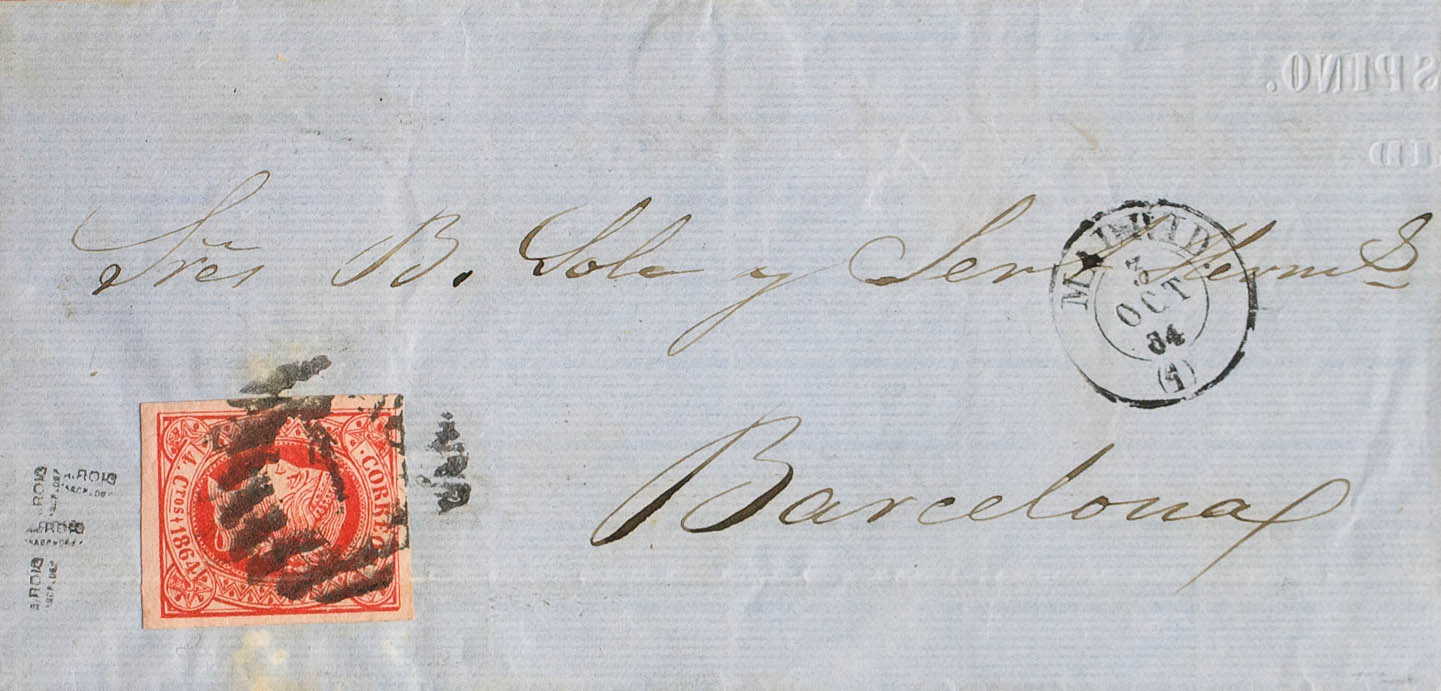 SPINO.
ID
Sres B. Sola y Sert Herms
MADRID.
3
OCT
64
(1)
Barcelona
CORREOS
4. Cros + 1864
A.ROIG
A.ROIG
A.ROIG
A.ROIG